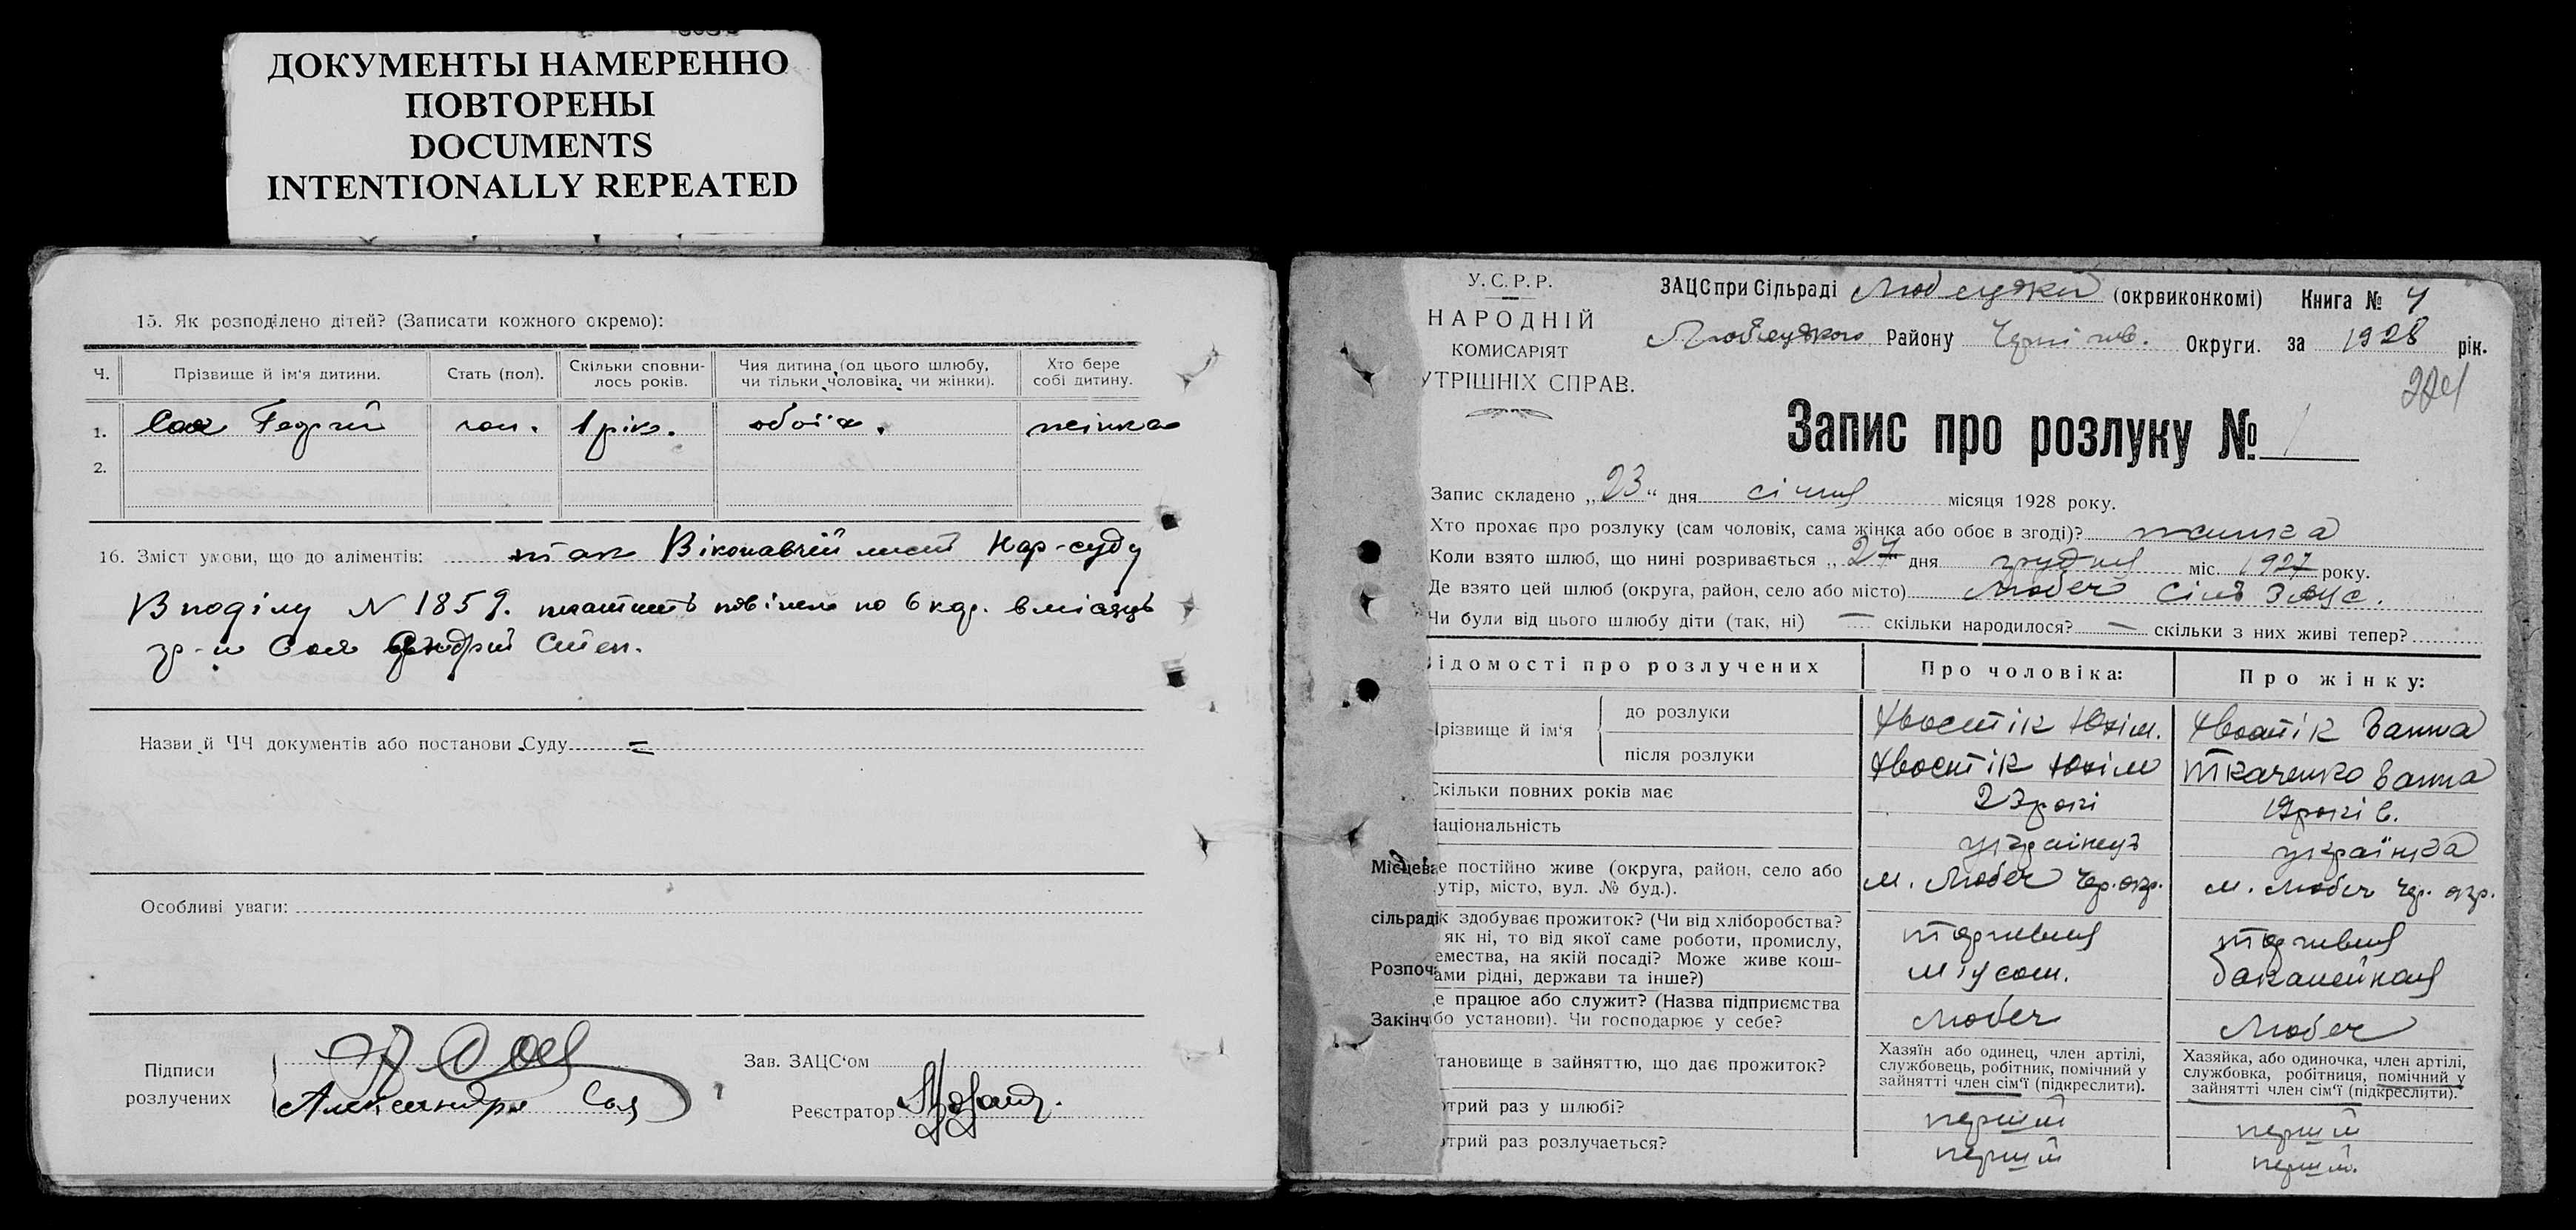 ДОКУМЕНТЫ НАМЕРЕННО
ПОВТОРЕНЫ
DOCUMENTS
INTENTIONALLY REPEATED
15. Як розподілено дітей? (Записати кожного окремо):
Ч. Прізвище й ім'я дитини. Стать (пол). Скільки сповни-лось років. Чия дитина (од цього шлюбу, чи тільки чоловіка, чи жінки). Хто бере собі дитину.
1. Соя Георгій чол. 1 рік. обоїх. жінка
2.
16. Зміст умови, що до аліментів: так Віконавчій лист Нар-суду
В поділу N 1859. платить повінен по 6 кар. в місяць
гр-н Соя Андрій Степ.
Назви й ЧЧ документів або постанови Суду —
Особливі уваги:
Підписи
розлучених
А Соя
Александра Соя
Зав. ЗАЦС'ом
Реєстратор
У.С.Р.Р.
НАРОДНІЙ
КОМИСАРІЯТ
УТРІШНІХ СПРАВ.
ЗАЦС при Сільраді Любецькій (окрвиконкомі) Книга № 4
Любецького Району Чернігів. Округи. за 1928 рік.
224
Запис про розлуку № 1
Запис складено „23" дня січня місяця 1928 року.
Хто прохає про розлуку (сам чоловік, сама жінка або обоє в згоді)? жинка
Коли взято шлюб, що нині розривається „27 дня грудня міс. 1927 року.
Де взято цей шлюб (округа, район, село або місто) Любеч Сіль Зацс.
Чи були від цього шлюбу діти (так, ні) — скільки народилося? — скільки з них живі тепер?
ідомості про розлучених Про чоловіка: Про жінку:
Прізвище й ім'я
до розлуки Хвостік Юхім. Хвостік Ганна
після розлуки Хвостік Юхім Ткаченко Ганна
Скільки повних років має 23 рокі 19 років.
Національність українець українка
Місцева
е постійно живе (округа, район, село або
утір, місто, вул. № буд.). м. Любеч Чер. окр. м. Любеч Чер. окр.
сільраді
к здобуває прожиток? (Чи від хліборобства?
як ні, то від якої саме роботи, промислу,
емества, на якій посаді? Може живе кош-
ами рідні, держави та інше?)
торгивля
мясом.
торгивля
бакалейная
Розпоч
Закінч
е працює або служит? (Назва підприємства
бо установи). Чи господарює у себе? Любеч Любеч
тановище в зайняттю, що дає прожиток?
Хазяїн або одинец, член артілі,
службовець, робітник, помічний у
зайнятті член сім'ї (підкреслити).
Хазяйка, або одиночка, член артілі,
службовка, робітниця, помічний у
зайнятті член сім'ї (підкреслити).
отрий раз у шлюбі? перший перший
отрий раз розлучається? перший перший.